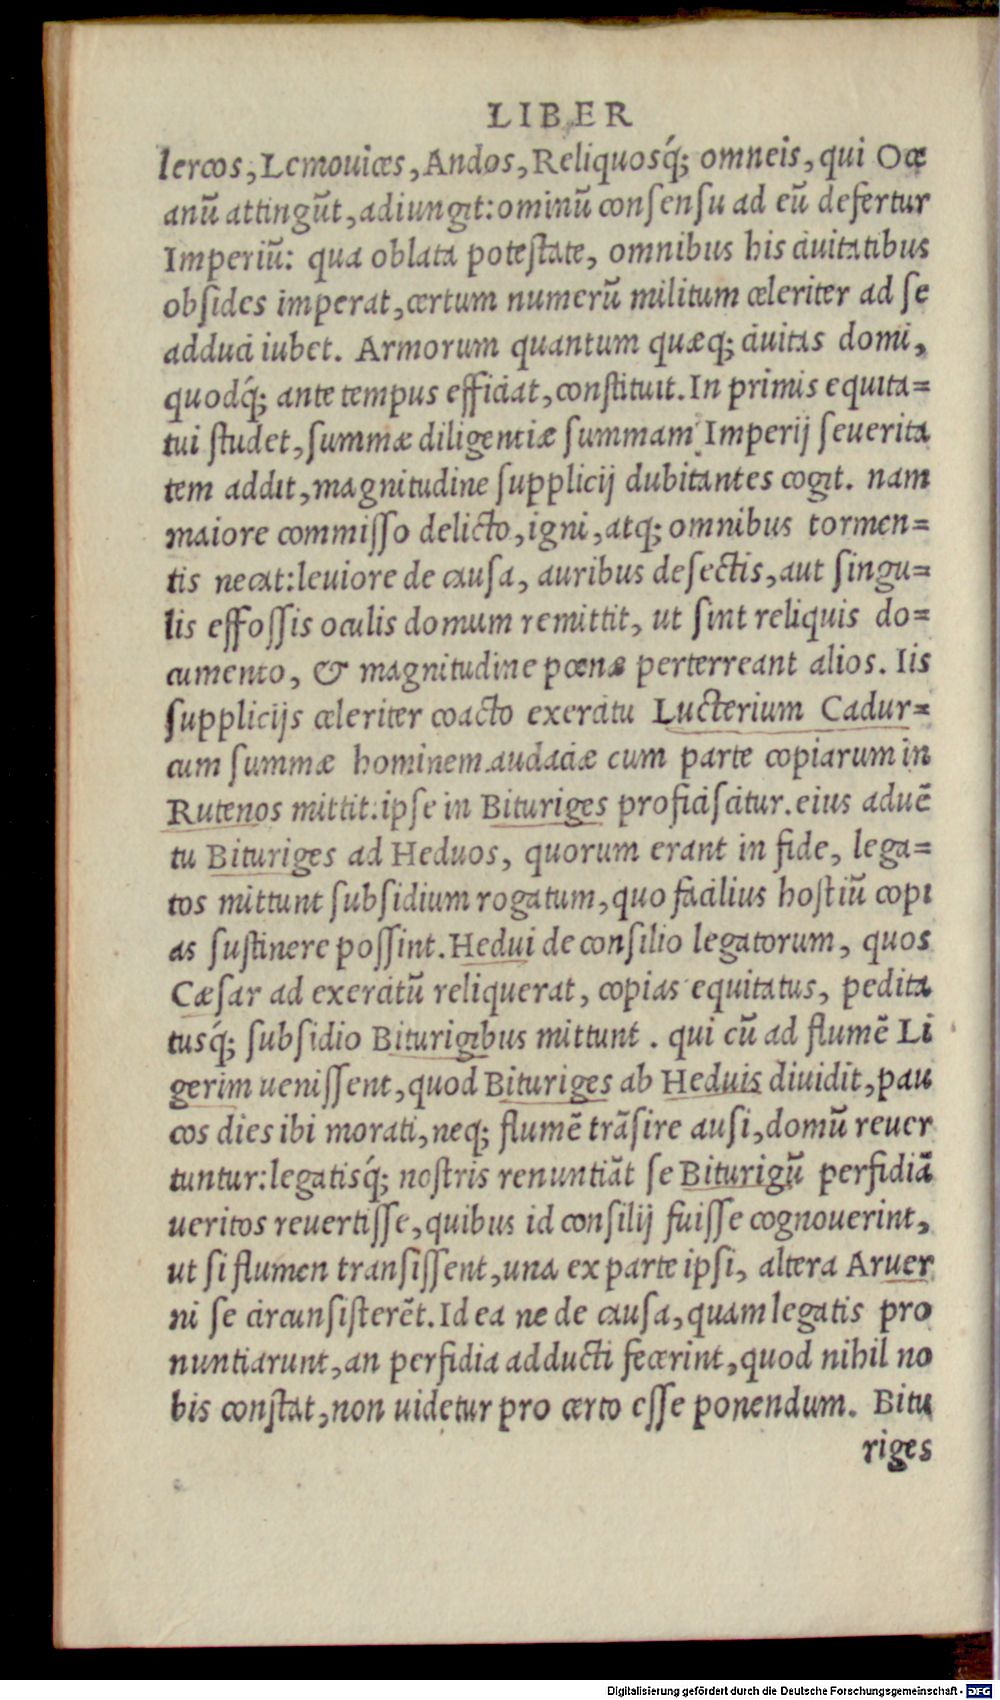 LIBER
lercos, Lemouices, Andos, Reliquosq́; omneis, qui Oce
anũ attingũt, adiungit: ominũ consensu ad eũ defertur
Imperiũ: qua oblata potestate, omnibus his ciuitatibus
obsides imperat, certum numerũ militum celeriter ad se
adduci iubet. Armorum quantum quæq; ciuitas domi,
quodq́; ante tempus efficiat, constituit. In primis equita=
tui studet, summæ diligentiæ summam Imperij seuerita
tem addit, magnitudine supplicij dubitantes cogit. nam
maiore commisso delicto, igni, atq; omnibus tormen=
tis necat: leuiore de causa, auribus desectis, aut singu=
lis effossis oculis domum remittit, ut sint reliquis do=
cumento, & magnitudine pœnæ perterreant alios. Iis
supplicijs celeriter coacto exercitu Lucterium Cadur=
cum summæ hominem audaciæ cum parte copiarum in
Rutenos mittit: ipse in Bituriges proficiscitur. eius aduẽ
tu Bituriges ad Heduos, quorum erant in fide, lega=
tos mittunt subsidium rogatum, quo facilius hostiũ copi
as sustinere possint. Hedui de consilio legatorum, quos
Cæsar ad exercitũ reliquerat, copias equitatus, pedita
tusq́; subsidio Biturigibus mittunt. qui cũ ad flumẽ Li
gerim uenissent, quod Bituriges ab Heduis diuidit, pau
cos dies ibi morati, neq; flumẽ trãsire ausi, domũ reuer
tuntur: legatisq́; nostris renuntiãt se Biturigũ perfidiã
ueritos reuertisse, quibus id consilij fuisse cognouerint,
ut si flumen transissent, una ex parte ipsi, altera Aruer
ni se circunsisterẽt. Id ea ne de causa, quam legatis pro
nuntiarunt, an perfidia adducti fecerint, quod nihil no
bis constat, non uidetur pro certo esse ponendum. Bitu
riges
Digitalisierung gefördert durch die Deutsche Forschungsgemeinschaft - DFG